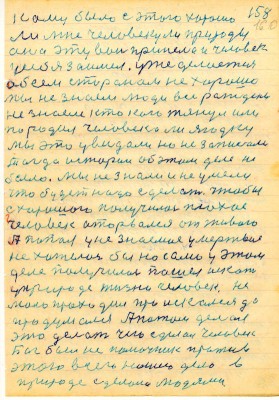 158
Кому было с этого хорошо
ли мне человеку ли природу
она эту вои привела и человек
у себя занял. Уже делается
обсем сторонам не хорошо
мы не знали люди все рождены
не знаем кто кого тянул или
породил человека ли ягодку
мы это увидали но не записали
тогда истории об этом деле не
было. мы не знали и не умели
что будет надо сделать чтобы
с хорошого получилось плохое
человек оторвался от живого
А попал у не знаемое умертвое
не хотелось бы но само у этом
деле получилось пошел искать
у природе жизни человек. не
мало проходил про искался да
про думался А потом делал
это делать чего сделал человек
Бог был не помочник против
этого всего нашо дело в
природе сделано людями